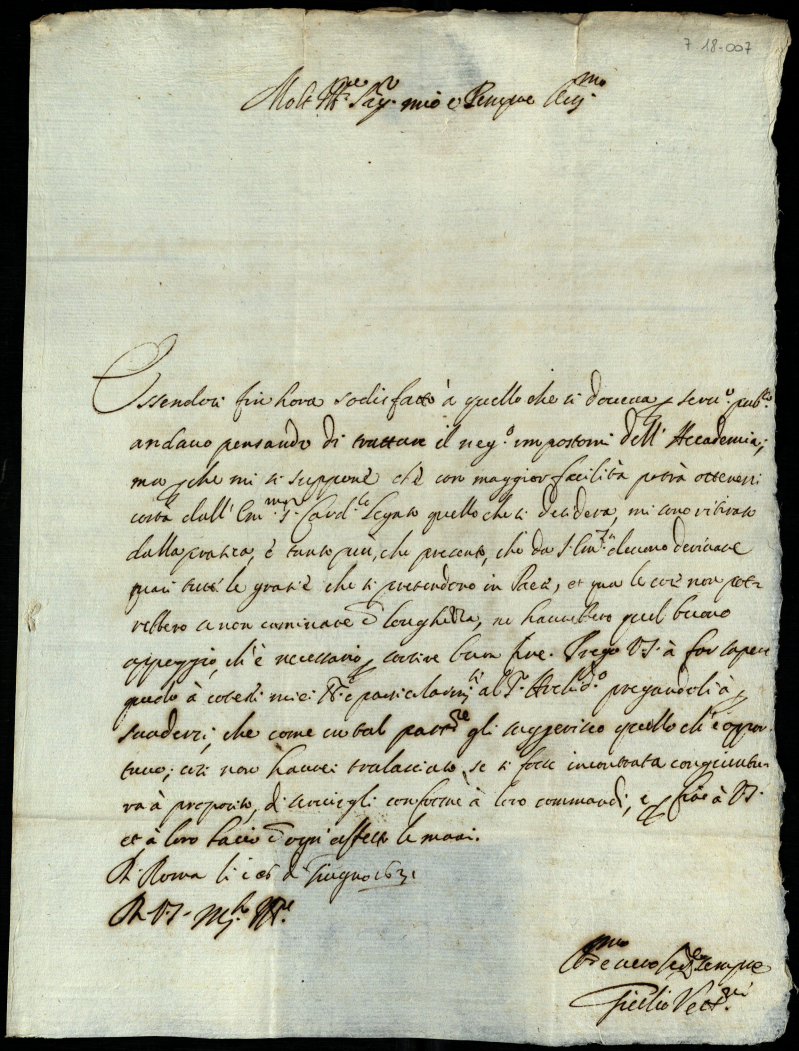 7 18-007
Molt Ill.re Sig.r mio e sempre
Essendosi fin hora sodisfatto à quello che si doveva p serv.o pub.co
andavo pensando di trattare il neg.o impostomi dell' Accademia;
ma p che mi si suppone che con maggior facilità potrà ottenersi
costà dall' Em.mo S. Card.le Legato quello che si desidera, mi sono ritirato
dalla pratica, è tanto più, che presento, che da S. Em.za devono derivare
quasi tutte le gratie che si pretendono in Paese, et qua le cose non pot
rebbero se non caminare cõ longhezza, ne haverebbero quel buono
appoggio, ch'è necessario p sortire buon fine. Prego V.S. à far sapere
questo à cotesti miei SS.ri e particolarm.te al S.r pregandoli à p
suadersi, che come suggerisco quello ch'è oppor
tuno; così non haverei tralasciato, se si fosse incontrata congiuntu
ra à proposito, di servirgli conforme à loro commandi, e p fine à V.S.
et à loro bacio cõ ogni affetto le mani.
Di Roma li 26 di Giugno 1631
Di V.S. Mol.to Ill.re
sempre
Giulio